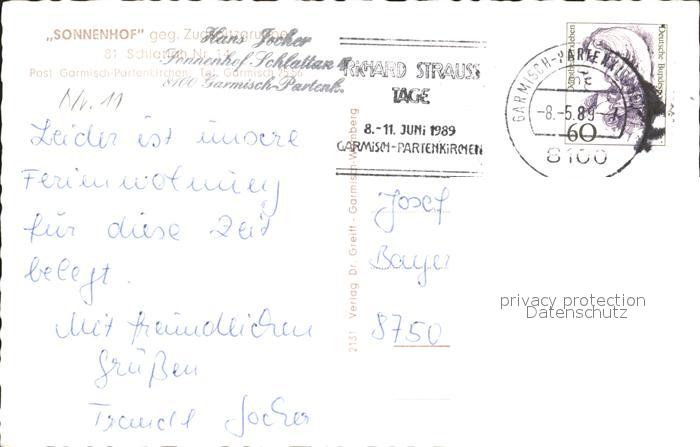 „SONNENHOF" geg. Zugspitzgruppe
81 Schlattan Nr.
Post Garmisch-Partenkirchen, Tel. Garmisch
Hans Jocher
Sonnenhof-Schlattan
8100 Garmisch-Partenk.
Nr. 11
Leider ist unsere
Ferienwohnung
für diese Zeit
belegt.
Mit freundlichen
Grüßen
Traudl Jocher
2131 Verlag Dr. Greiff - Garmisch-Wamberg
RICHARD STRAUSS
TAGE
8.-11. JUNI 1989
GARMISCH-PARTENKIRCHEN
GARMISCH-PARTENKIRCHEN
-8.-5.89
8100
60
Deutsche Bundespost
Josef
Bayer
8750
privacy protection
Datenschutz